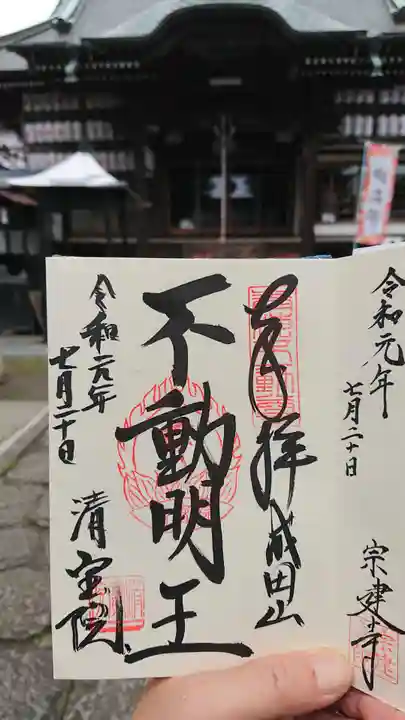 令和元年
七月二十日
宗建寺
奉拝 成田山
不動明王
令和元年
七月二十日
清宝院